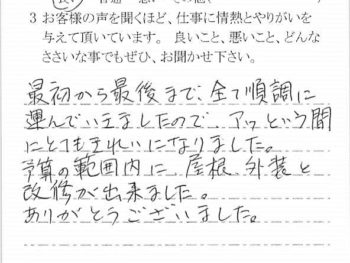 3 お客様の声を聞くほど、仕事に情熱とやりがいを
与えて頂いています。 良いこと、悪いこと、どんな
ささいな事でもぜひ、お聞かせ下さい。
最初から最後まで、全て順調に
運んでいきましたので、アッという間
にとてもきれいになりました。
予算の範囲内に、屋根、外装と
改修が出来ました。
ありがとうございました。